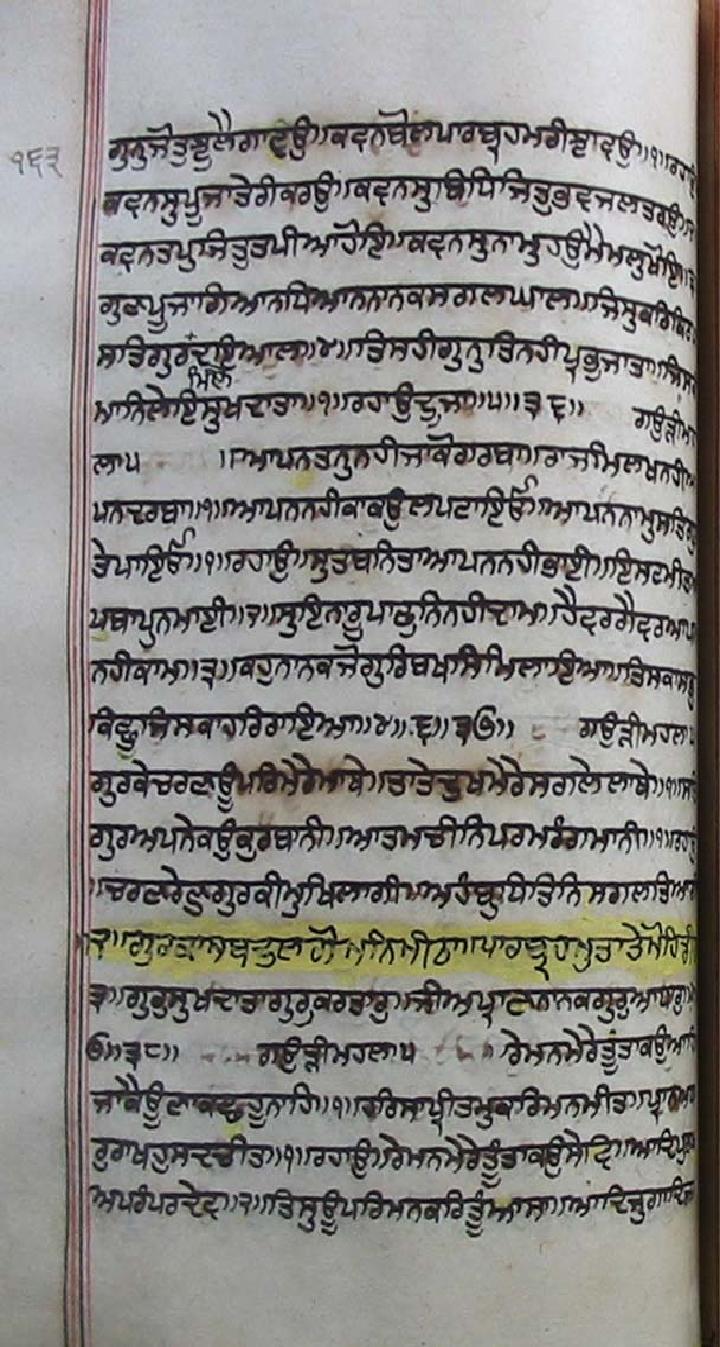 ੧੬੩
ਗੁਨੁਜੋਤੁਝੁਲੈਗਾਵਉ॥ਕਵਨਬੋਲਪਾਰਬ੍ਰਹਮਰੀਝਾਵਉ॥੧॥ਰਹਾਉ
ਕਵਨਸੁਪੂਜਾਤੇਰੀਕਰਉ॥ਕਵਨਸੁਬਿਧਿਜਿਤੁਭਵਜਲਤਰਉ॥
ਕਵਨਤਪੁਜਿਤੁਤਪੀਆਹੋਇ॥ਕਵਨਸੁਨਾਮੁਹਉਮੈਮਲੁਖੋਇ॥੩
ਗੁਣਪੂਜਾਗਿਆਨਧਿਆਨਨਾਨਕਸਗਲਘਾਲ॥ਜਿਸੁਕਰਿਕਿਰ
ਸਤਿਗੁਰਦਇਆਲ॥੪॥ਤਿਸਹੀਗੁਨੁਤਿਨਹੀਪ੍ਰਭੁਜਾਤਾ॥ਜਿਸ
ਮਿਲੈ
ਮਾਨਿਲੇਇਸੁਖਦਾਤਾ॥੧॥ਰਹਾਉਦੂਜਾ॥੫॥੩੬॥ ਗਉੜੀਮ
ਲਾ੫ ॥ਆਪਨਤਨੁਨਹੀਜਾਕੋਗਰਬਾ॥ਰਾਜਮਿਲਖਨਹੀਆ
ਪਨਦਰਬਾ॥੧॥ਆਪਨਨਹੀਕਾਕਉਲਪਟਾਇਓ॥ਆਪਨਨਾਮੁਸਤਿਗੁ
ਤੇਪਾਇਓ॥੧॥ਰਹਾਉ॥ਸੁਤਬਨਿਤਾਆਪਨਨਹੀਭਾਈ॥ਇਸਟਮੀਤਆ
ਪਬਾਪੁਨਮਾਈ॥੨॥ਸੁਇਨਾਰੂਪਾਫੁਨਿਨਹੀਦਾਮ॥ਹੈਵਰਗੈਵਰਆਪ
ਨਹੀਕਾਮ॥੩॥ਕਹੁਨਾਨਕਜੋਗੁਰਿਬਖਸਿਮਿਲਾਇਆ॥ਤਿਸਕਾਸਭੁ
ਕਿਛੁਜਿਸਕਾਹਰਿਰਾਇਆ॥੪॥੬॥੩੭॥ ਗਉੜੀਮਹਲਾ੫
ਗੁਰਕੇਚਰਣਊਪਰਿਮੇਰੇਮਾਥੇ॥ਤਾਤੇਦੁਖਮੇਰੇਸਗਲੇਲਾਥੇ॥੧॥ਸਤਿ
ਗੁਰਅਪਨੇਕਉਕੁਰਬਾਨੀ॥ਆਤਮਚੀਨਿਪਰਮਰੰਗਮਾਨੀ॥੧॥ਰਹਾਉ
॥ਚਰਣਰੇਣੁਗੁਰਕੀਮੁਖਿਲਾਗੀ॥ਅਹੰਬੁਧਿਤਿਨਿਸਗਲਤਿਆਗੀ
੨॥ਗੁਰਕਾਸਬਦੁਲਗੋਮਨਿਮੀਠਾ॥ਪਾਰਬ੍ਰਹਮੁਤਾਤੇਮੋਹਿਡੀ
੩॥ਗੁਰੁਸੁਖਦਾਤਾਗੁਰੁਕਰਤਾਰੁ॥ਜੀਅਪ੍ਰਾਣਨਾਨਕਗੁਰੁਆਧਾਰੁ॥੪
੭॥੩੮॥ ਗਉੜੀਮਹਲਾ੫ ਰੇਮਨਮੇਰੇਤੂੰਤਾਕਉਆਹਿ
ਜਾਕੈਊਣਾਕਛਹੂਨਾਹਿ॥੧॥ਹਰਿਸਾਪ੍ਰੀਤਮੁਕਰਿਮਨਮੀਤ॥ਪ੍ਰਾਨਅਧਾ
ਰੁਰਾਖਹੁਸਦਚੀਤ॥੧॥ਰਹਾਉ॥ਰੇਮਨਮੇਰੇਤੂੰਤਾਕਉਸੇਵਿ॥ਆਦਿਪੁਰਖ
ਅਪਰੰਪਰਦੇਵ॥੨॥ਤਿਸੁਊਪਰਿਮਨਕਰਿਤੂੰਆਸਾ॥ਆਦਿਜੁਗਾਦਿਜਾ